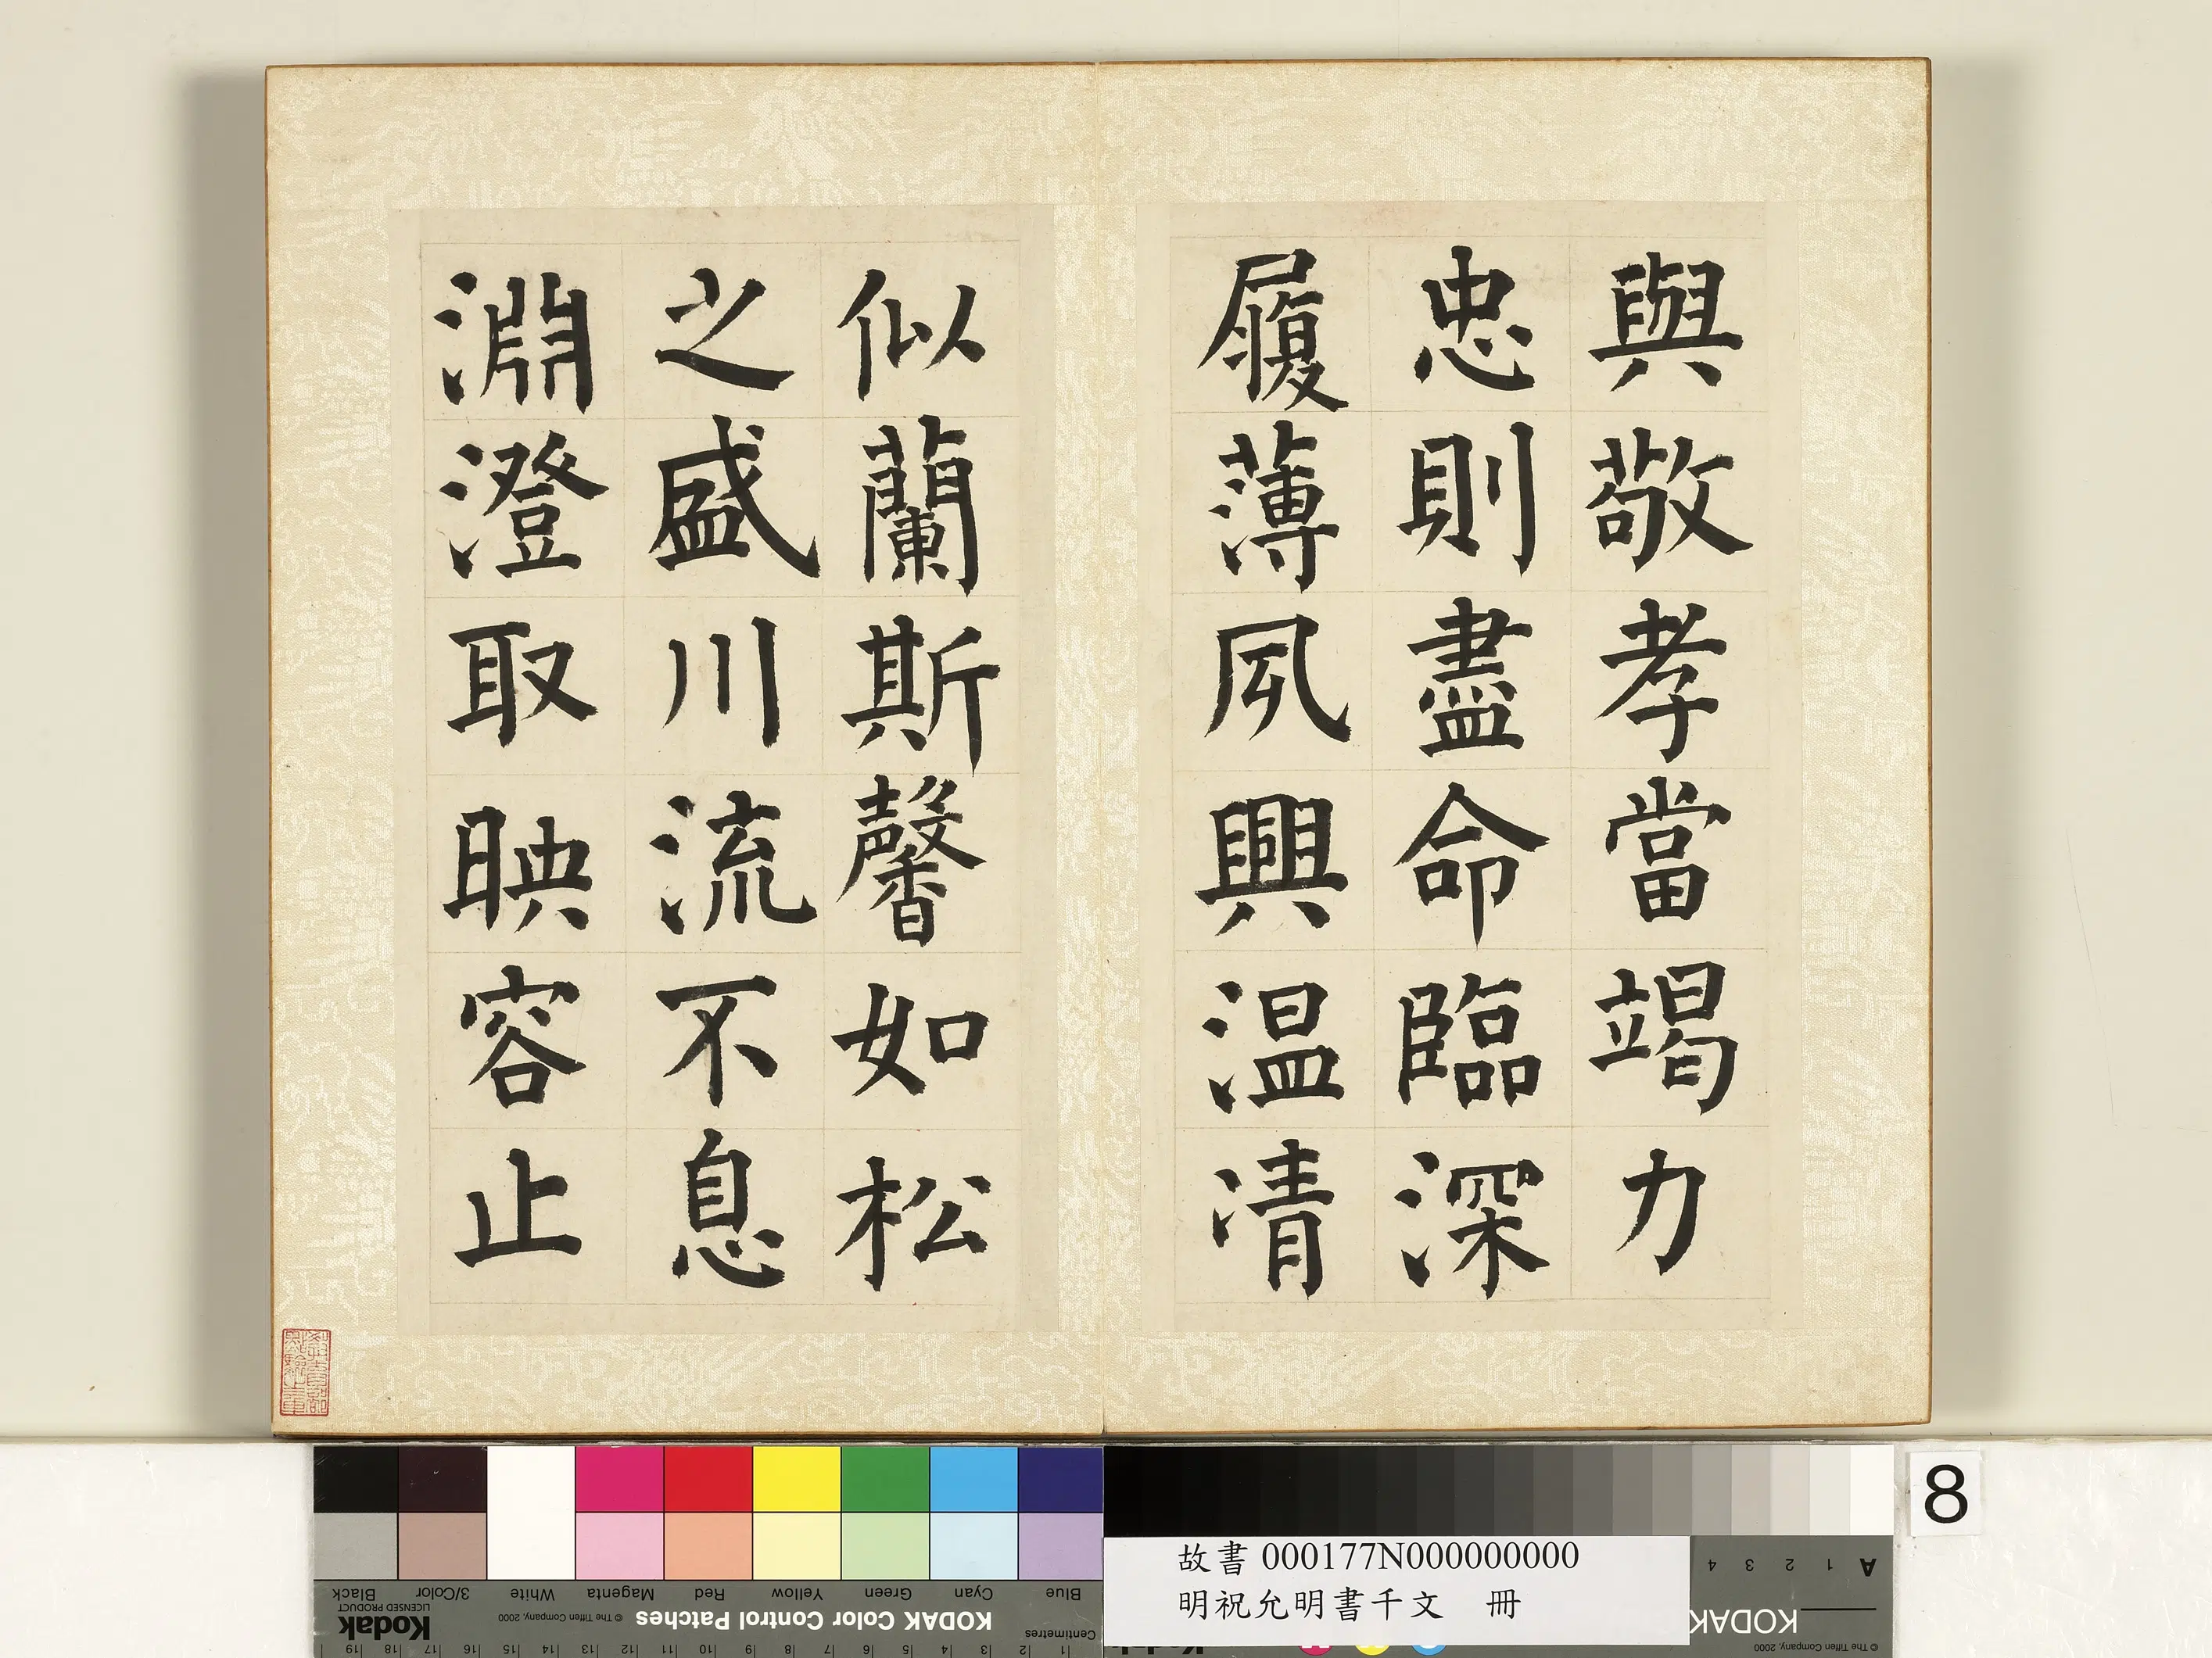 與敬孝當竭力
忠則盡命臨深
履薄夙興温凊
似蘭斯馨如松
之盛川流不息
淵澄取映容止
8
故書 000177N000000000
明祝允明書千文 冊
KODAK Color Control Patches
© The Tiffen Company, 2000
Kodak
LICENSED PRODUCT
Blue Cyan Green Yellow Red Magenta White 3/Color Black
Centimetres
1 2 3 4 5 6 7 8 9 10 11 12 13 14 15 16 17 18 19
A 1 2 3 4
KODAK
© The Tiffen Company, 2000